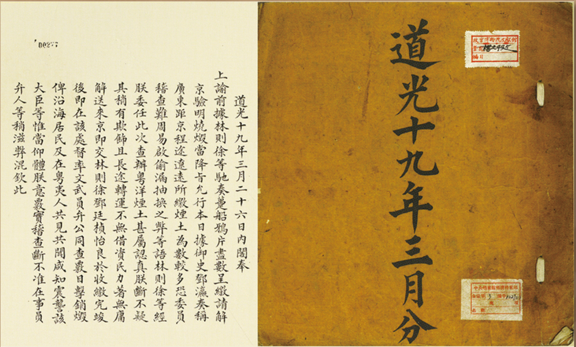 道光十九年三月分
道光十九年三月二十六日內閣奉
上諭前據林則徐等馳奏躉船鴉片盡數呈繳請解
京驗明燒燬當降旨允行本日據御史鄧瀛奏稱
廣東距京程途遼遠所繳煙土為數較多恐委員
稽查難周易啟偷漏抽換之弊等語林則徐等經
朕委任此次查辦粵洋煙土甚屬認真朕斷不疑
其稍有欺飾且長途轉運不無借資民力著無庸
解送來京即交林則徐鄧廷楨怡良於收繳完竣
後即在該處督率文武員弁公同查數目擊銷燬
俾沿海居民及在粵夷人共見共聞咸知震讋該
大臣等惟當仰體朕意覈實稽查斷不准在事員
弁人等稍滋弊混欽此